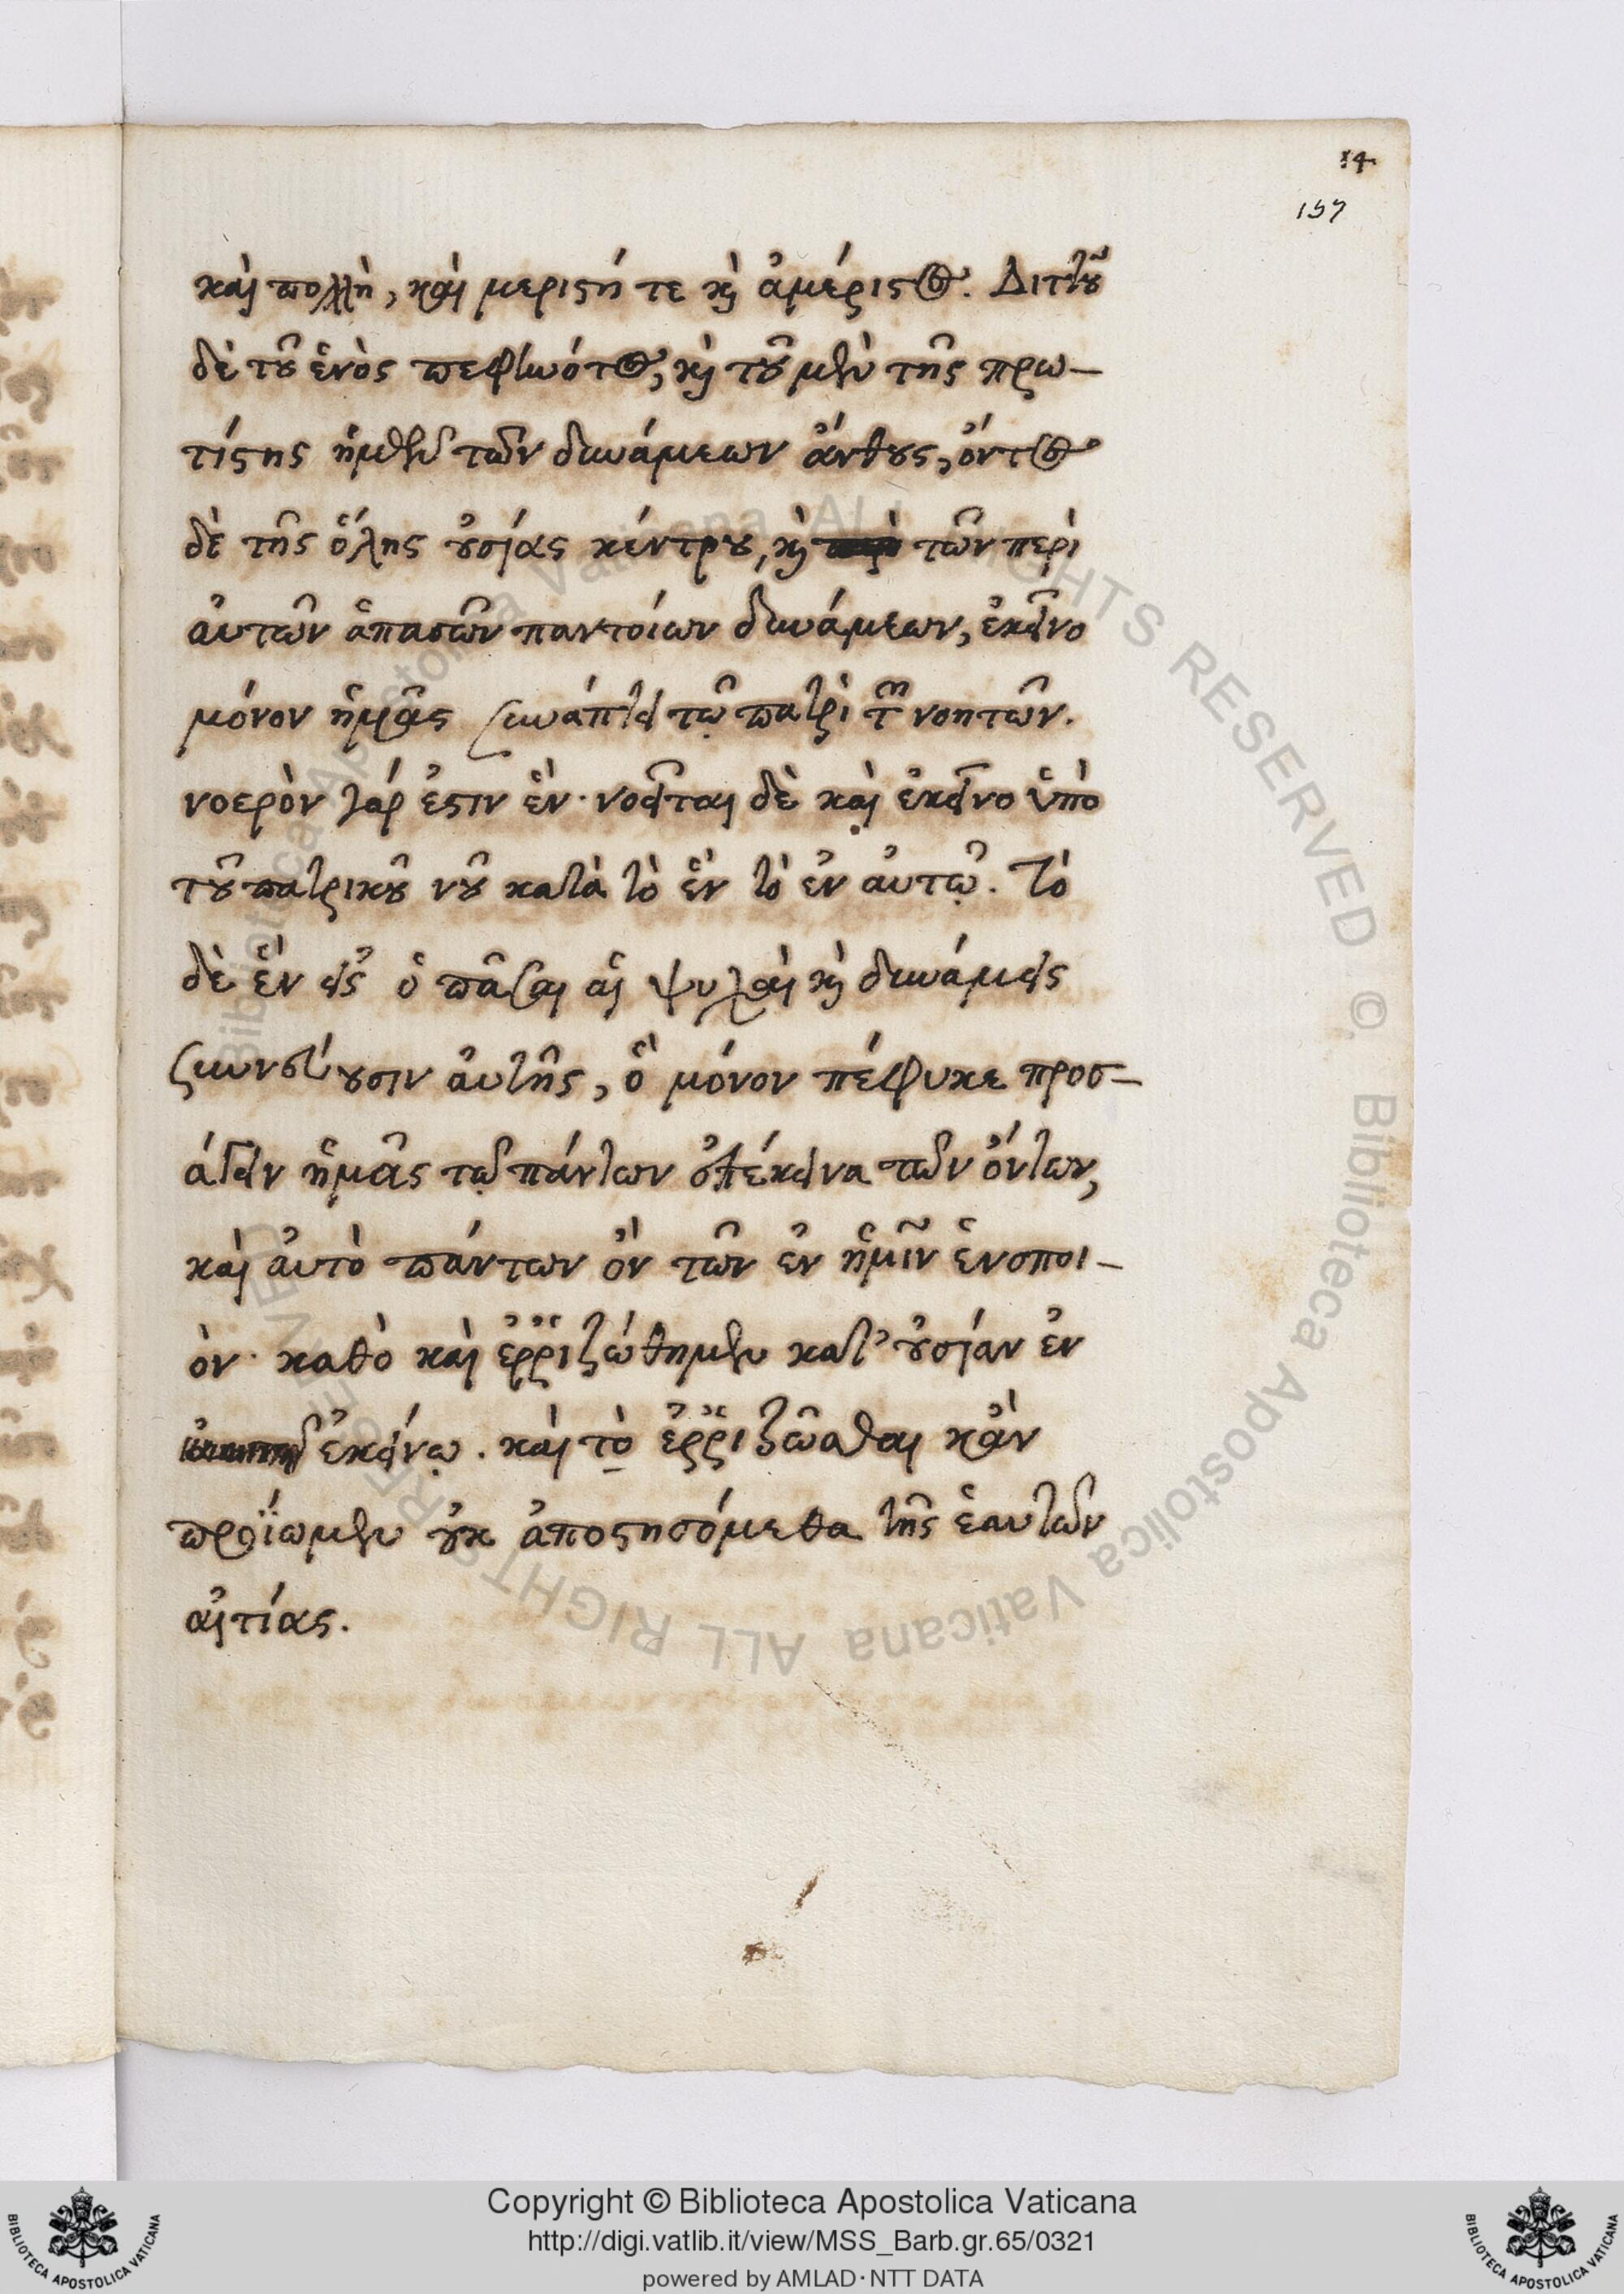 14
157
καὶ πολλὴ, καὶ μεριστή τε κὶ ἀμέριστος. Διττοῦ
δὲ τοῦ ἑνὸς πεφηνότος, κὶ τοῦ μὲν τῆς πρω-
τίστης ἡμῶν τῶν δυνάμεων ἄνθους, ὄντος
δὲ τῆς ὅλης οὐσίας κέντρου, κὶ τῶν περὶ
αὐτῶν ἁπασῶν παντοίων δυνάμεων, ἐκεῖνο
μόνον ἡμᾶς συνάπτει τῷ πατρὶ τῶν νοητῶν.
νοερὸν γάρ ἐστιν ἕν· νοεῖται δὲ καὶ ἐκεῖνο ὑπὸ
τοῦ πατρικοῦ νοῦ κατὰ τὸ ἓν τὸ ἐν αὐτῷ. Τὸ
δὲ ἓν εἰς ὃ πᾶσαι αἱ ψυχαὶ κὶ δυνάμεις
συννεύουσιν αὐτῆς, ὃ μόνον πέφυκε προσ-
άγειν ἡμᾶς τῷ πάντων ἐπέκεινα τῶν ὄντων,
καὶ αὐτὸ πάντων ὂν τῶν ἐν ἡμῖν ἑνοποι-
ὸν· καθὸ καὶ ἐῤῥιζώθημεν κατ' οὐσίαν ἐν
ἐκείνῳ. καὶ τὸ ἐῤῥιζῶσθαι κἂν
προΐωμεν οὐκ ἀποστησόμεθα τῆς ἑαυτῶν
αἰτίας.
Copyright © Biblioteca Apostolica Vaticana
http://digi.vatlib.it/view/MSS_Barb.gr.65/0321
powered by AMLAD·NTT DATA
BIBLIOTECA APOSTOLICA VATICANA
BIBLIOTECA APOSTOLICA VATICANA
Biblioteca Apostolica Vaticana ALL RIGHTS RESERVED © Biblioteca Apostolica Vaticana ALL RIGHTS RESERVED